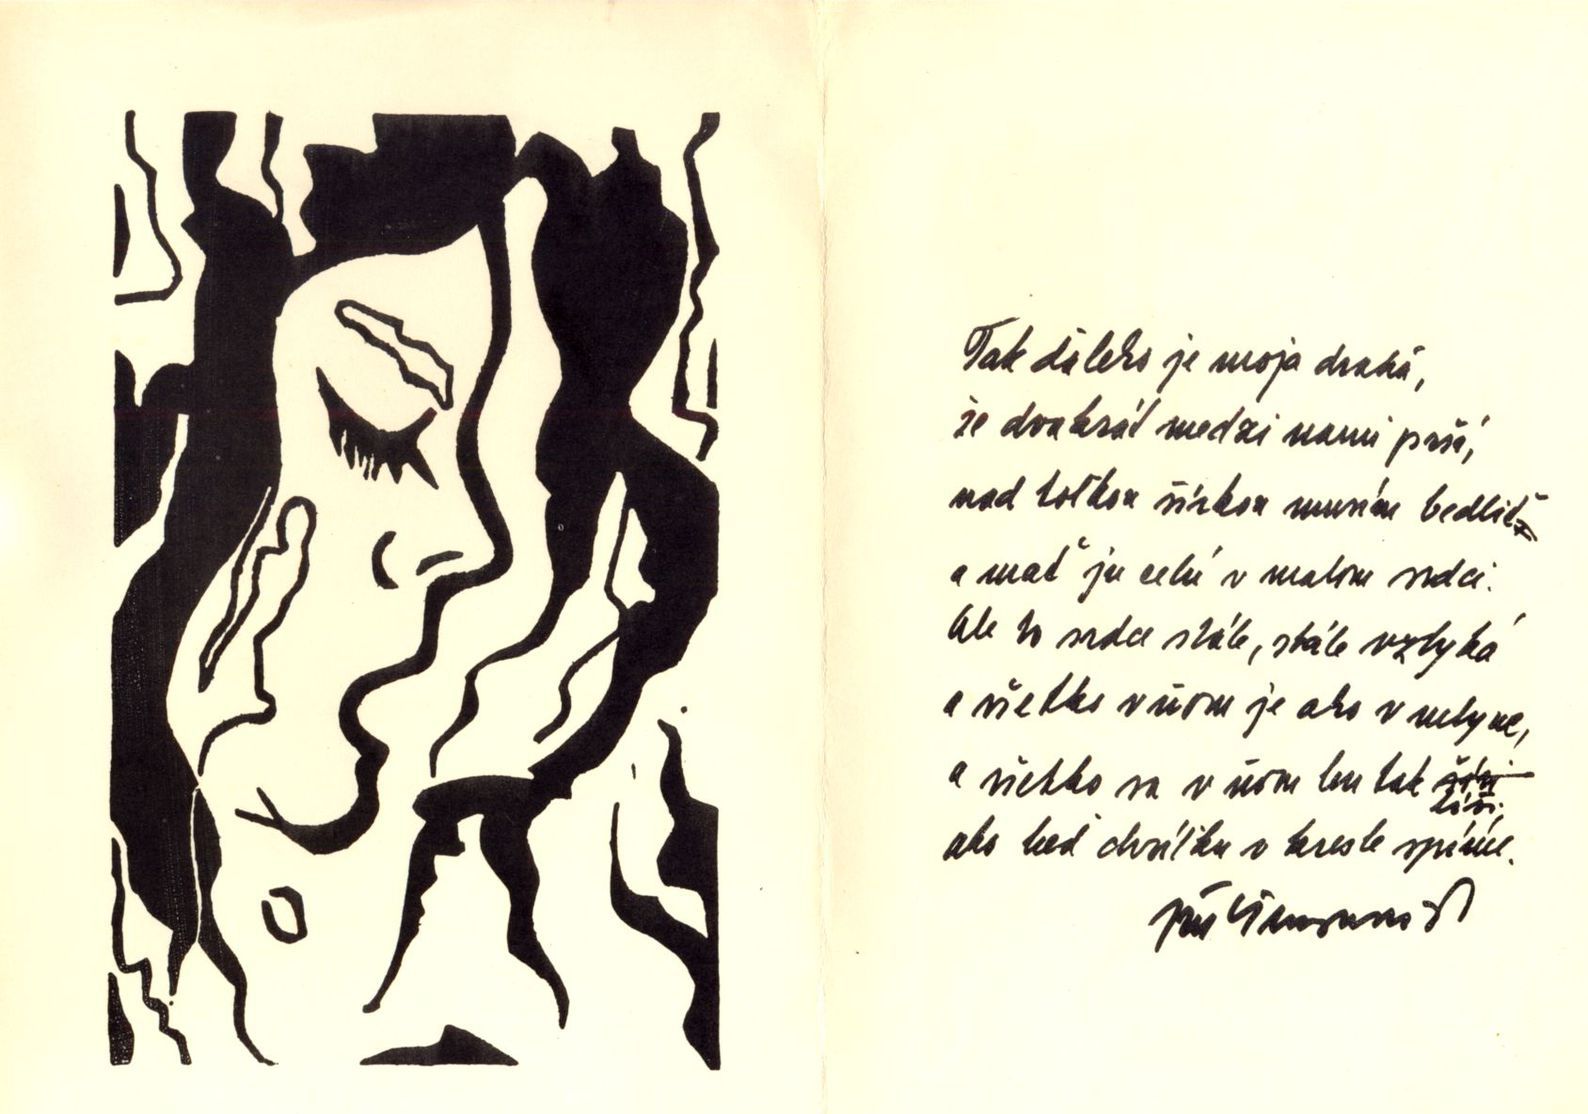 Tak ďaleko je moja drahá,
že dvakrát medzi nami prší,
nad toľkou šírkou musím bedliť
a mať ju celú v malom srdci.
Ale to srdce stále, stále vzlyká
a všetko v ňom je ako v mlyne,
a všetko sa v ňom len tak
tíši,
ako keď chvíľku v kresle spíme.